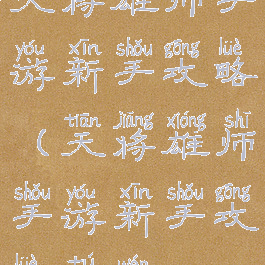 天将雄师手
yóu xīn shǒu gōng lüè
游新手攻略
tiān jiāng xióng shī
(天将雄师
shǒu yóu xīn shǒu gōng
手游新手攻
lüè tú wén